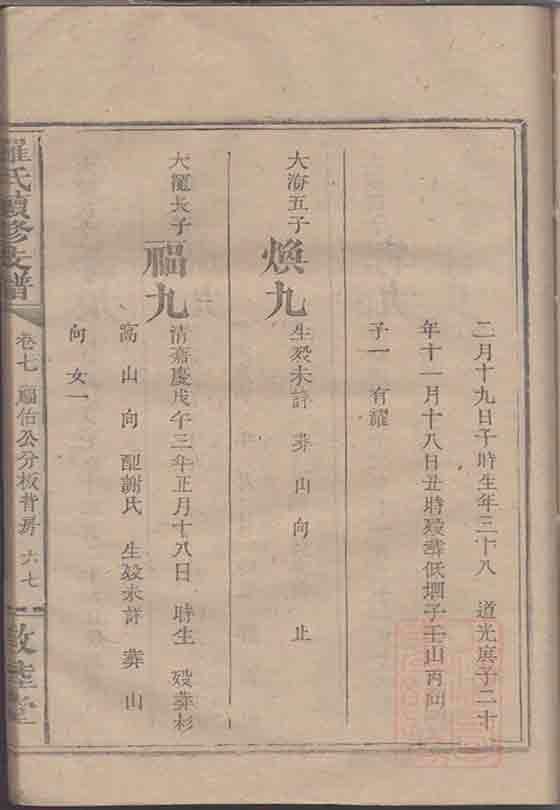 二月十九日子時生年三十八 道光庚子二十
年十一月十八日丑時殁葬低壋子壬山丙向
子一 有耀
大海五子
煥九
生殁未詳 葬 山 向 止
大龍長子
福九
清嘉慶戊午三年正月十八日 時生 殁葬杉
高山 向 配謝氏 生殁未詳 葬 山
向 女一
羅氏續修支譜
卷七 顯佑公分板背房 六七
敦睦堂